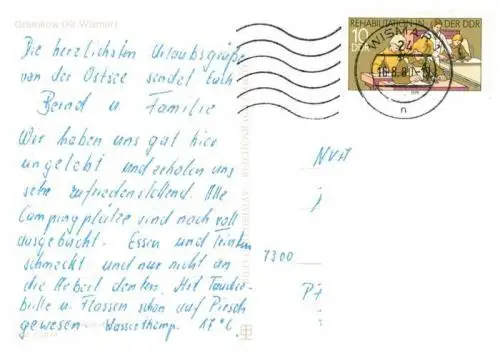 Gramkow (Kr. Wismar)
REHABILITATION IN DER DDR
10
DDR
WISMAR 1
24
16.8.80.-18
n
Die herzlichsten Urlaubsgrüße
von der Ostsee sendet Euch
Bernd u. Familie
Wir haben uns gut hier
eingelebt und erholen uns
sehr zufriedenstellend. Alle
Campingplätze sind noch voll
ausgebucht. Essen und Trinken
schmeckt und nur nicht an
die Arbeit denken. Mit Taucher-
brille u. Flossen schon auf Pirsch
gewesen Wassertemp. 17°C.
NVA
7300